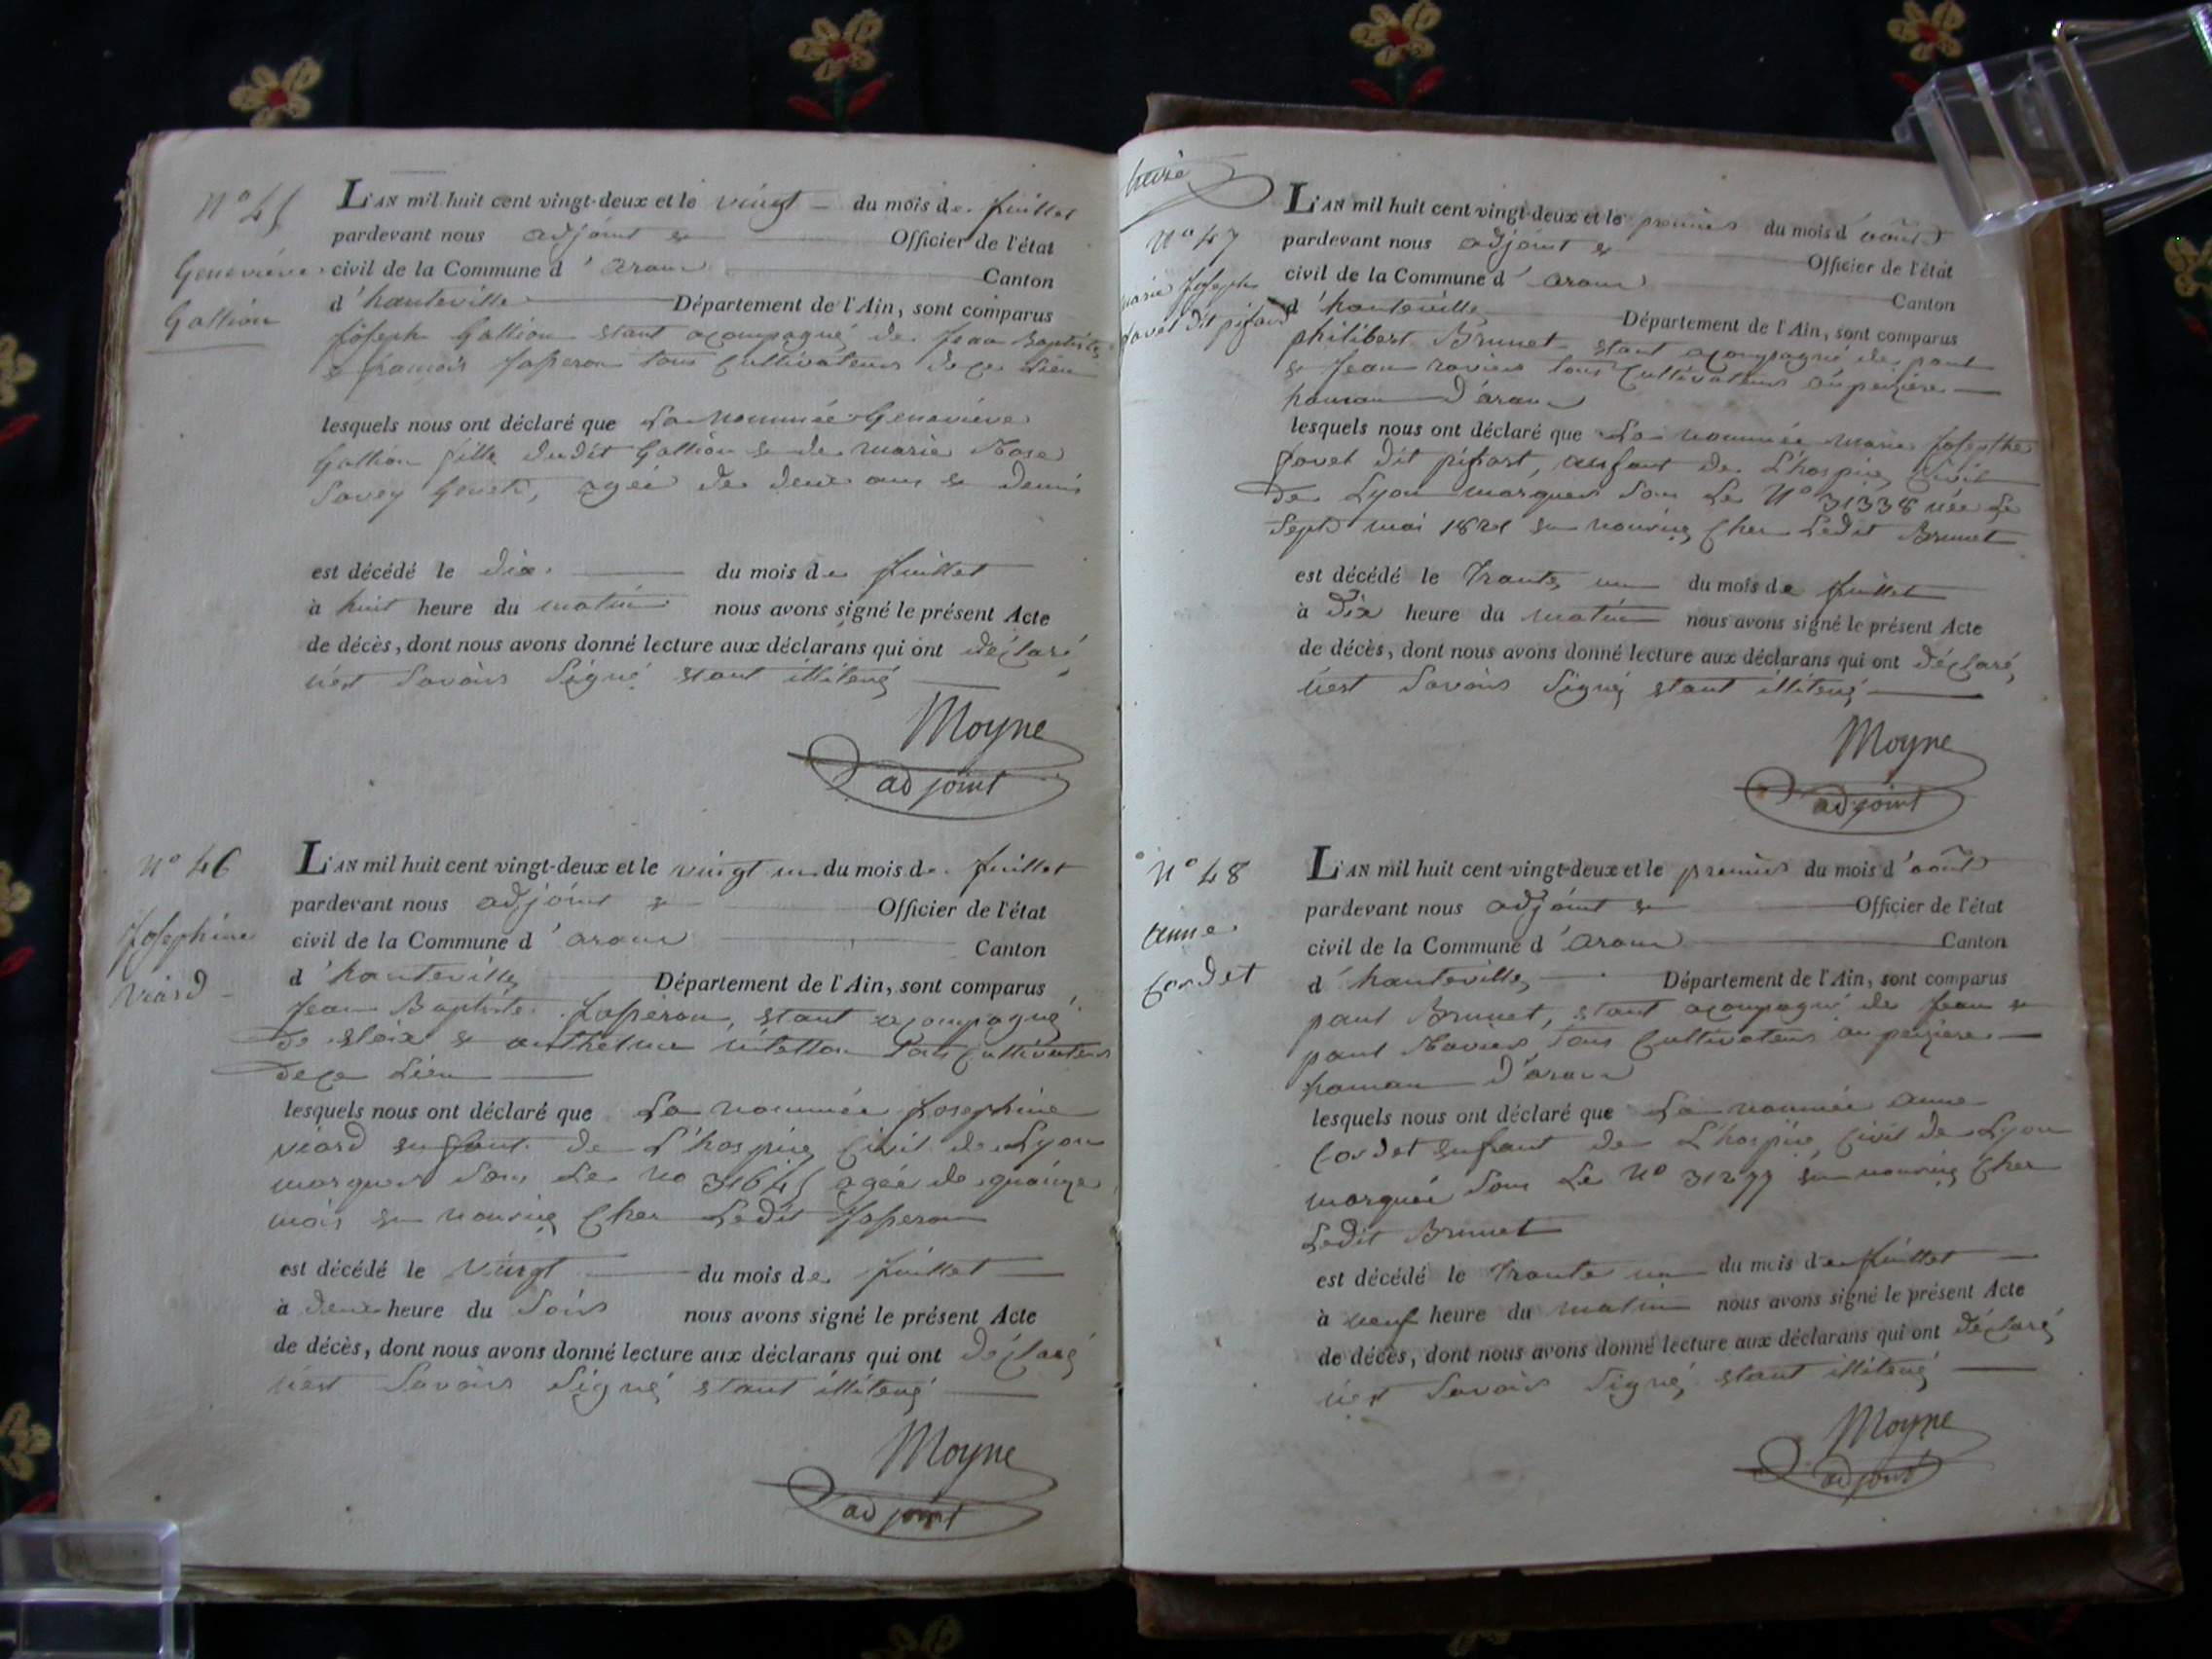 N° 45
Geneviève
Gallion
L'AN mil huit cent vingt-deux et le vingt du mois de juillet
pardevant nous adjoint & Officier de l'état
civil de la Commune d'aranc Canton
d'hauteville Département de l'Ain, sont comparus
joseph Gallion etant acompagné de jean Baptiste
& francois japeron tous cultivateurs de ce Lieu
lesquels nous ont déclaré que La nommée Geneviève
Gallion fille dudit Gallion & de marie Rose
Savey, agée de deux ans & demis
est décédé le dix du mois de juillet
à huit heure du matin nous avons signé le présent Acte
de décès, dont nous avons donné lecture aux déclarans qui ont déclaré
n'est Savoir Signé etant illiteré
Moyne
adjoint
N° 46
Josephine
Viard
L'AN mil huit cent vingt-deux et le vingt un du mois de juillet
pardevant nous adjoint & Officier de l'état
civil de la Commune d'aranc Canton
d'hauteville Département de l'Ain, sont comparus
jean Baptiste japeron, etant acompagné
de & anthelme tous cultivateurs
de ce Lieu
lesquels nous ont déclaré que La nommée josephine
viard enfant de L'hospice Civil de Lyon
marquer Sous Le No 31645 agée de quinze
mois en nourice Cher Ledit japeron
est décédé le vingt du mois de juillet
à deux heure du Soir nous avons signé le présent Acte
de décès, dont nous avons donné lecture aux déclarans qui ont déclaré
n'est Savoir Signé etant illiteré
Moyne
adjoint
N° 47
marie Joseph
favet dit pifard
L'AN mil huit cent vingt-deux et le premier du mois d'août
pardevant nous adjoint & Officier de l'état
civil de la Commune d'aranc Canton
d'hauteville Département de l'Ain, sont comparus
philibert Brunet etant acompagné de paul
& jean ravier tous Cultivateurs au pezieres
hamau d'aranc
lesquels nous ont déclaré que La nommée marie josepthe
favet dit pifart, enfant de L'hospice Civil
de Lyon marquer Sous Le N° 31338 née Le
Sept mai 1821 en nourice Cher Ledit Brunet
est décédé le Trante un du mois de juillet
à Dix heure du matin nous avons signé le présent Acte
de décès, dont nous avons donné lecture aux déclarans qui ont déclaré
n'est Savoir Signé etant illiteré
Moyne
adjoint
N° 48
anne
Cordet
L'AN mil huit cent vingt-deux et le premier du mois d'août
pardevant nous adjoint & Officier de l'état
civil de la Commune d'aranc Canton
d'hauteville Département de l'Ain, sont comparus
paul Brunet, etant acompagné de jean &
paul Ravier tous Cultivateurs au pezieres
hamau d'aranc
lesquels nous ont déclaré que La nommée anne
Cordet enfant de L'hospice Civil de Lyon
marquée Sous Le N° 31277 en nourice Cher
Ledit Brunet
est décédé le Trante un du mois de juillet
à neuf heure du matin nous avons signé le présent Acte
de décès, dont nous avons donné lecture aux déclarans qui ont déclaré
n'est Savoir Signé etant illiteré
Moyne
adjoint